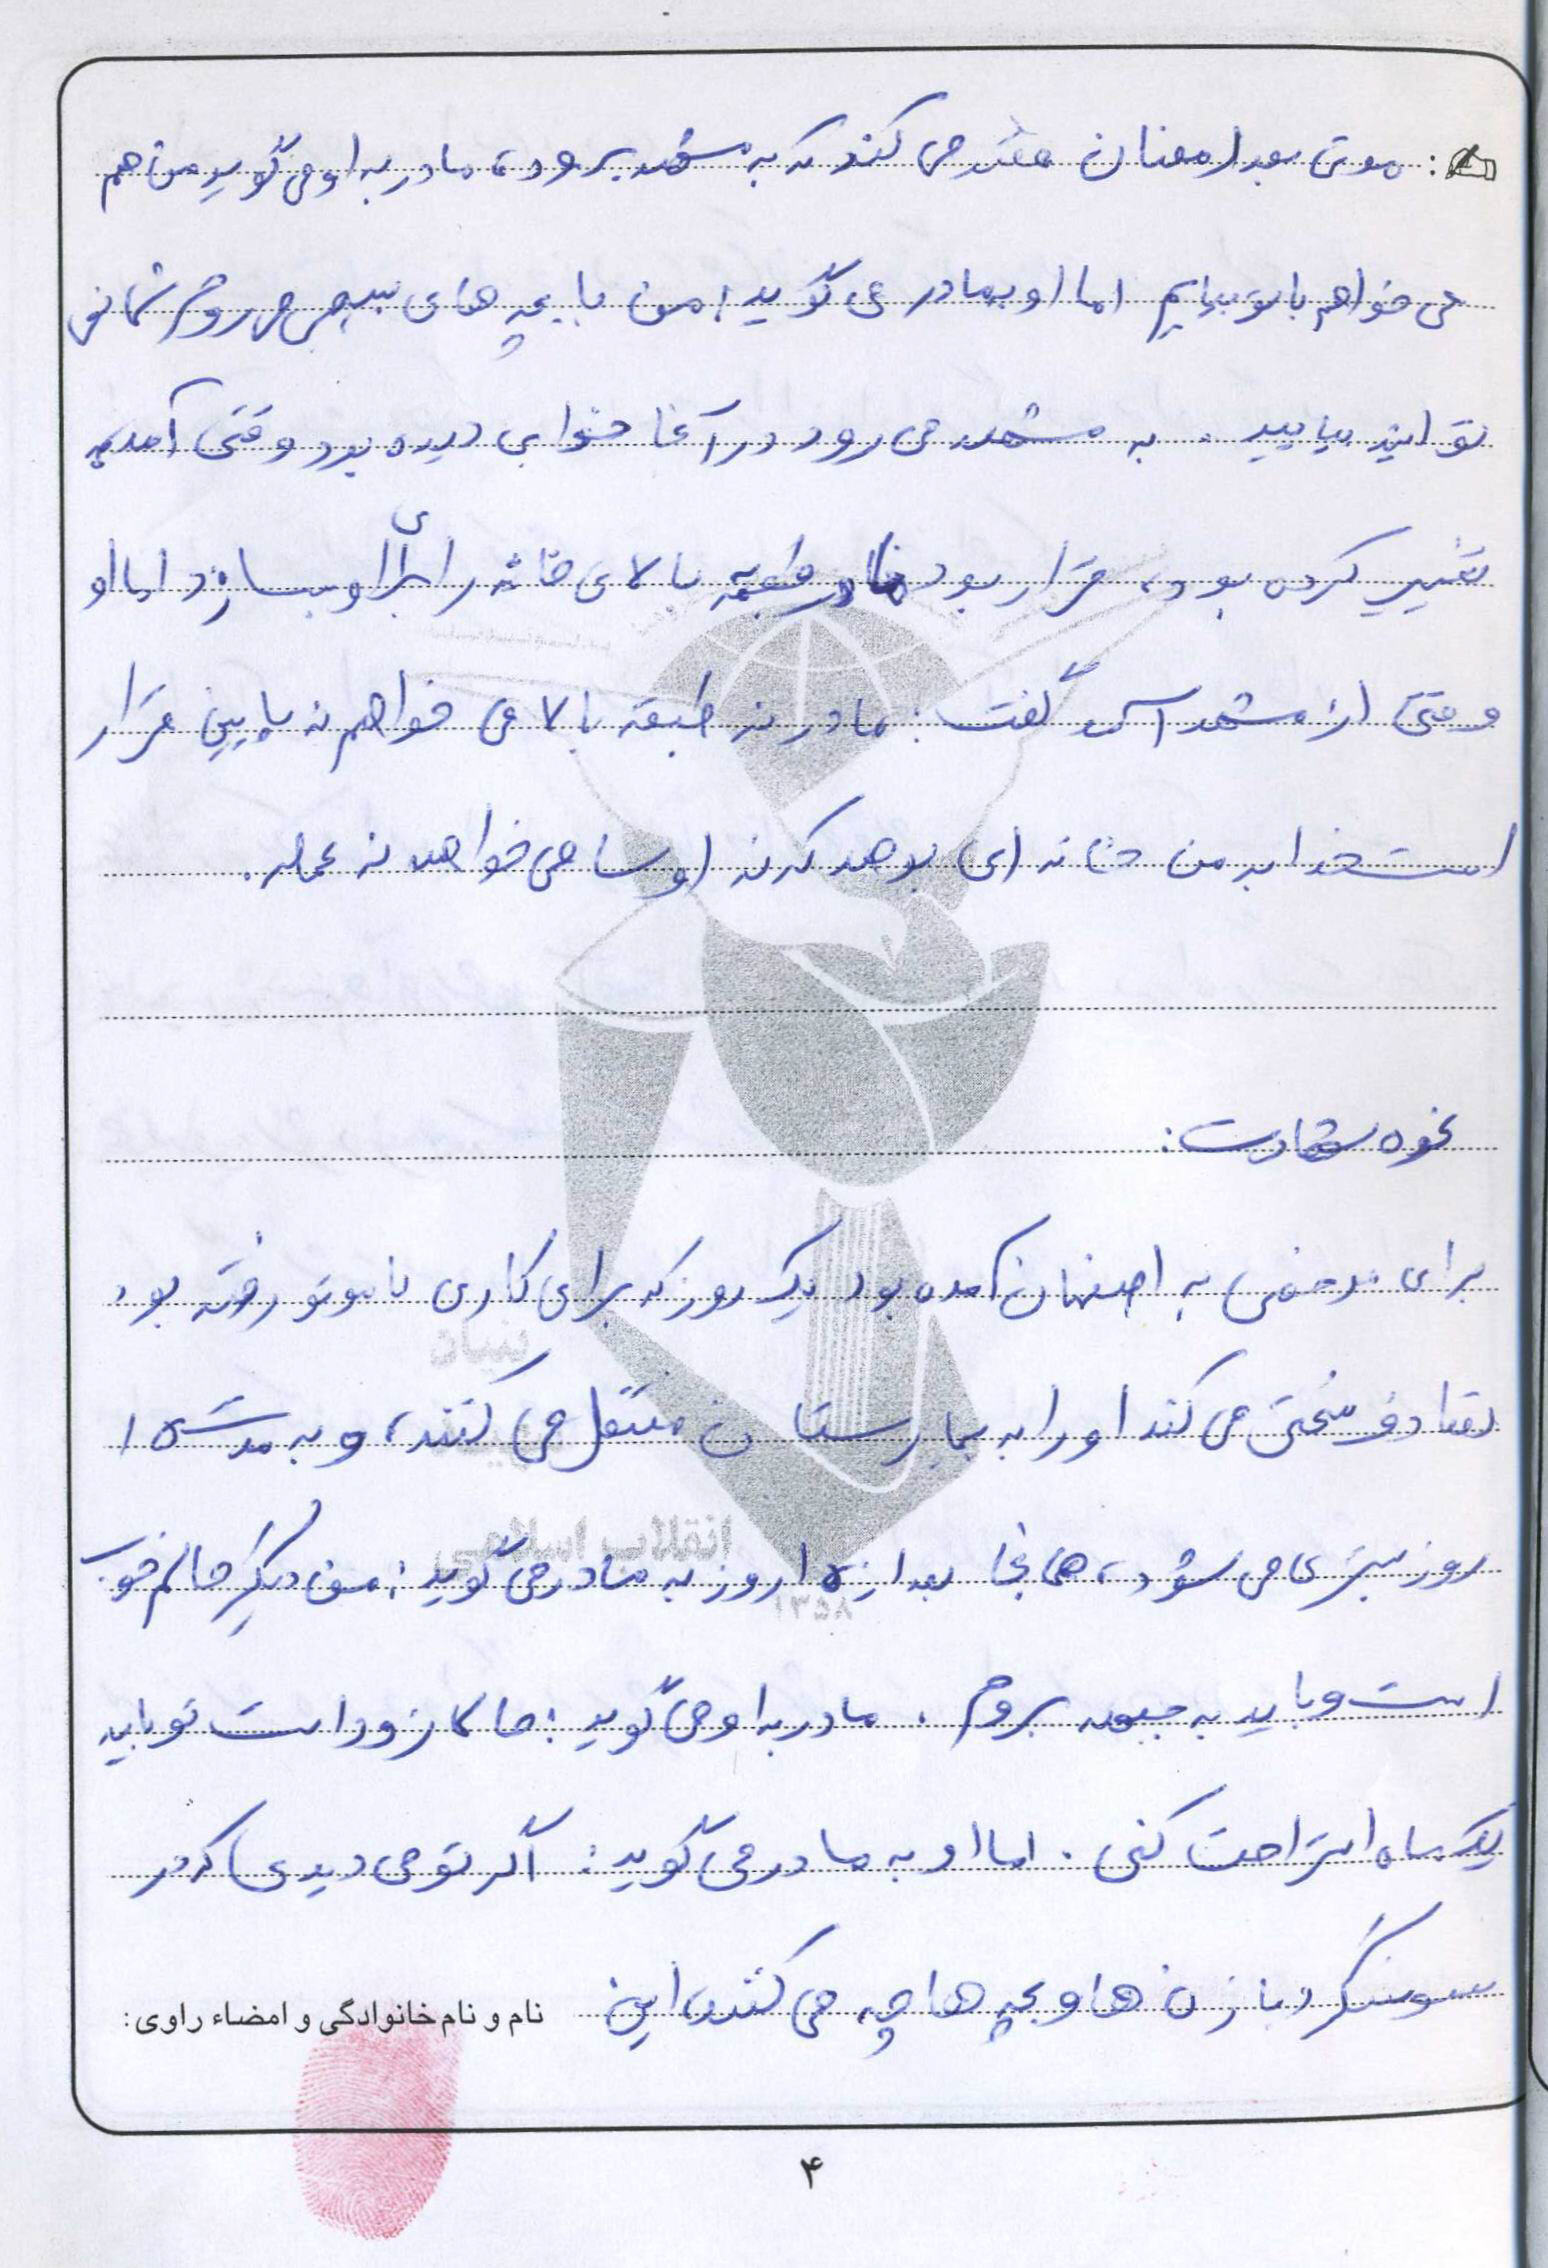 موقع بعد از رمضان قصد می کند که به مشهد برود، مادر به او می گوید من هم
می خواهم با تو بیایم اما او به مادر می گوید: من با بچه های بسیجی می روم شما نمی
توانید بیایید. به مشهد می رود در آنجا خوابی دیده بود وقتی آمد
تغییر کرده بود، قرار بود مادر طبقه بالای خانه را برای او بسازد اما او
وقتی از مشهد آمد گفت: مادر نه طبقه بالا می خواهم نه پایین قرار
است خدا به من خانه ای بدهد که نه اوسا می خواهد نه عمله.
نحوه شهادت:
برای مرخصی به اصفهان آمده بود یک روز که برای کاری با موتور رفته بود
تصادف سختی می کند او را به بیمارستان منتقل می کنند، و به مدت ۱۵
روز بستری می شود، همانجا بعد از ۱۵ روز به مادر می گوید: من دیگر حالم خوب
است و باید به جبهه بروم. مادر به او می گوید: حالا زود است تو باید
یک ماه استراحت کنی. اما او به مادر می گوید: اگر تو می دیدی که در
سوسنگرد با زن ها و بچه ها چه می کنند، این
نام و نام خانوادگی و امضاء راوی:
بنیاد
شهید
انقلاب اسلامی
۱۳۵۸
۴